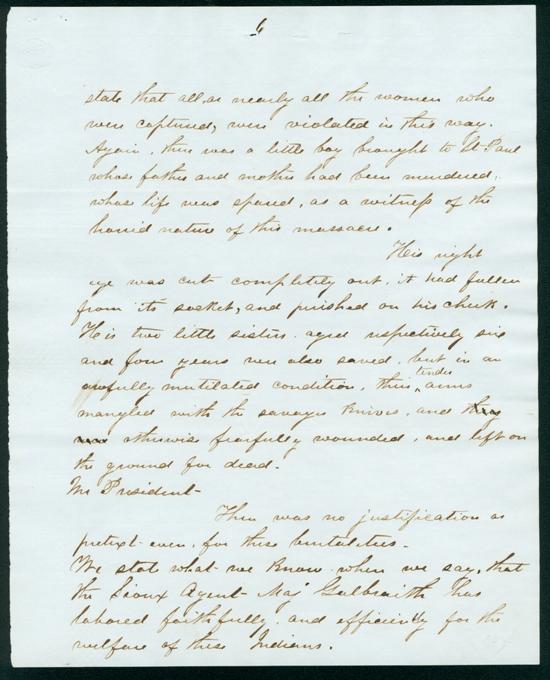 6
state that all, or nearly all the women who
were captured, were violated in this way.
Again, there was a little boy brought to St Paul
whose father and mother had been murdered,
whose life was spared, as a witness of the
horrid nature of this massacre.
His right
eye was cut completely out, it had fallen
from its socket, and perished on his cheek.
His two little sisters aged respectively six
and four years were also saved, but in an
awfully mutilated condition, their tender arms
mangled with the savages knives, and
otherwise fearfully wounded, and left on
the ground for dead.
Mr President-
There was no justification or
pretext even, for these brutalities-
We state what we know when we say, that
the Sioux Agent Maj Galbraith has
labored faithfully and efficiently for the
welfare of these Indians.